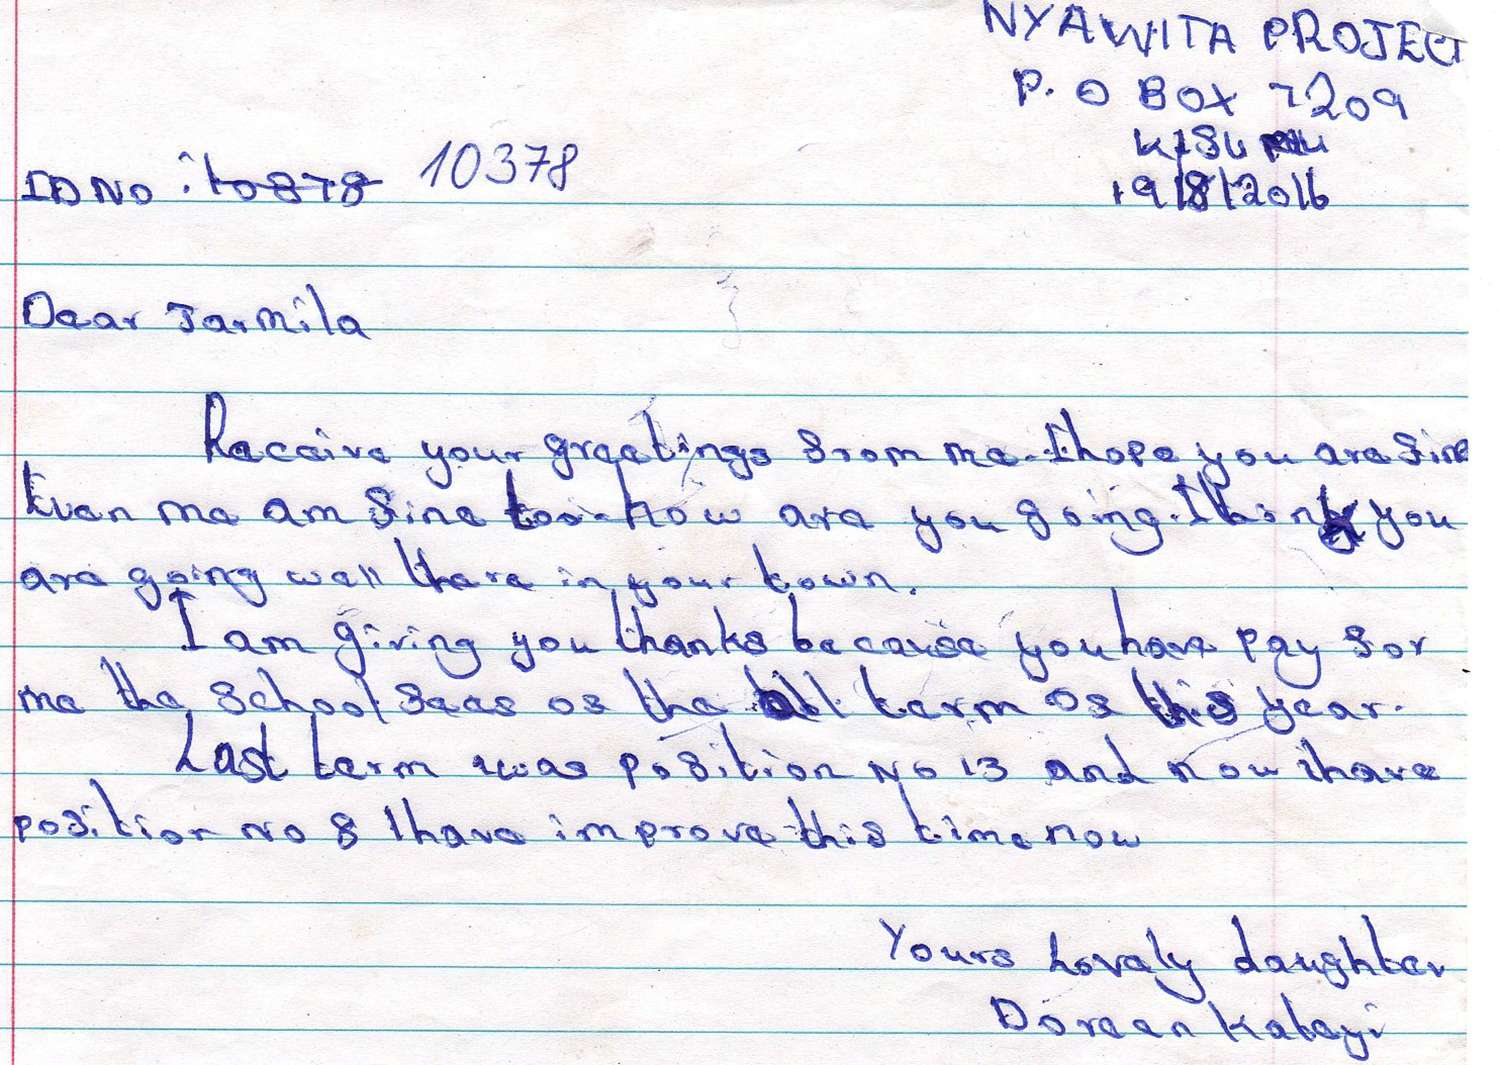 NYAWITA PROJECT
P. O BOX 7209
KISUMU
19/8/2016
ID NO : 10878 10378
Dear Jarmila
Receive your greetings from me. I hope you are fine
Even me am fine too. how are you going. I think you
are going well there in your town.
I am giving you thanks because you have pay for
me the school fees of the all term of this year.
Last term was position no 13 and now I have
position no 8 I have improve this time now
Yours Lovely daughter
Doreen